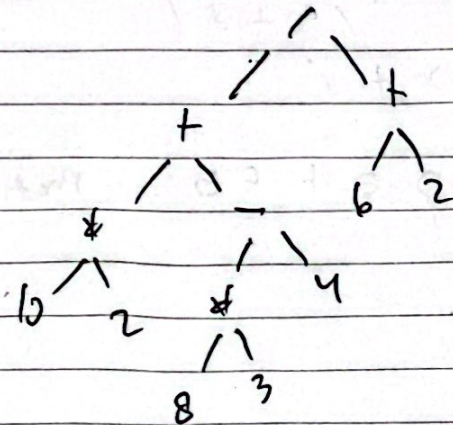 /
+ +
* - 6 2
10 2 * 4
8 3